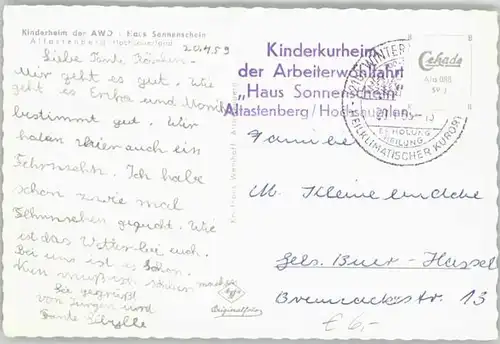 Kinderheim der AWO · Haus Sonnenschein
Altastenberg · Hochsauerland
20.4.59
Liebe Tante Käthen.
Mir geht es gut. Wie
geht es Erika und Monika
bestimmt gut. Wir
haben hier auch ein
Fehrnsehn. Ich habe
schon zwie mal
Fehrnsehen geguckt. Wie
ist das Wetter bei euch.
Bei uns ist es schön.
Nun muß ich schluss machen
Sei gegrüßt
von Jürgen und
Tante Sibylle
Kinderkurheim
der Arbeiterwohlfahrt
„Haus Sonnenschein"
Altastenberg / Hochsauerland
WINTER
ERHOLUNG
HEILUNG
HEILKLIMATISCHER KURORT
Cekade
Agfa
Originalfoto
Familie
M. Kleine
Gels. Buer - Hassel
str. 13
€ 6,-